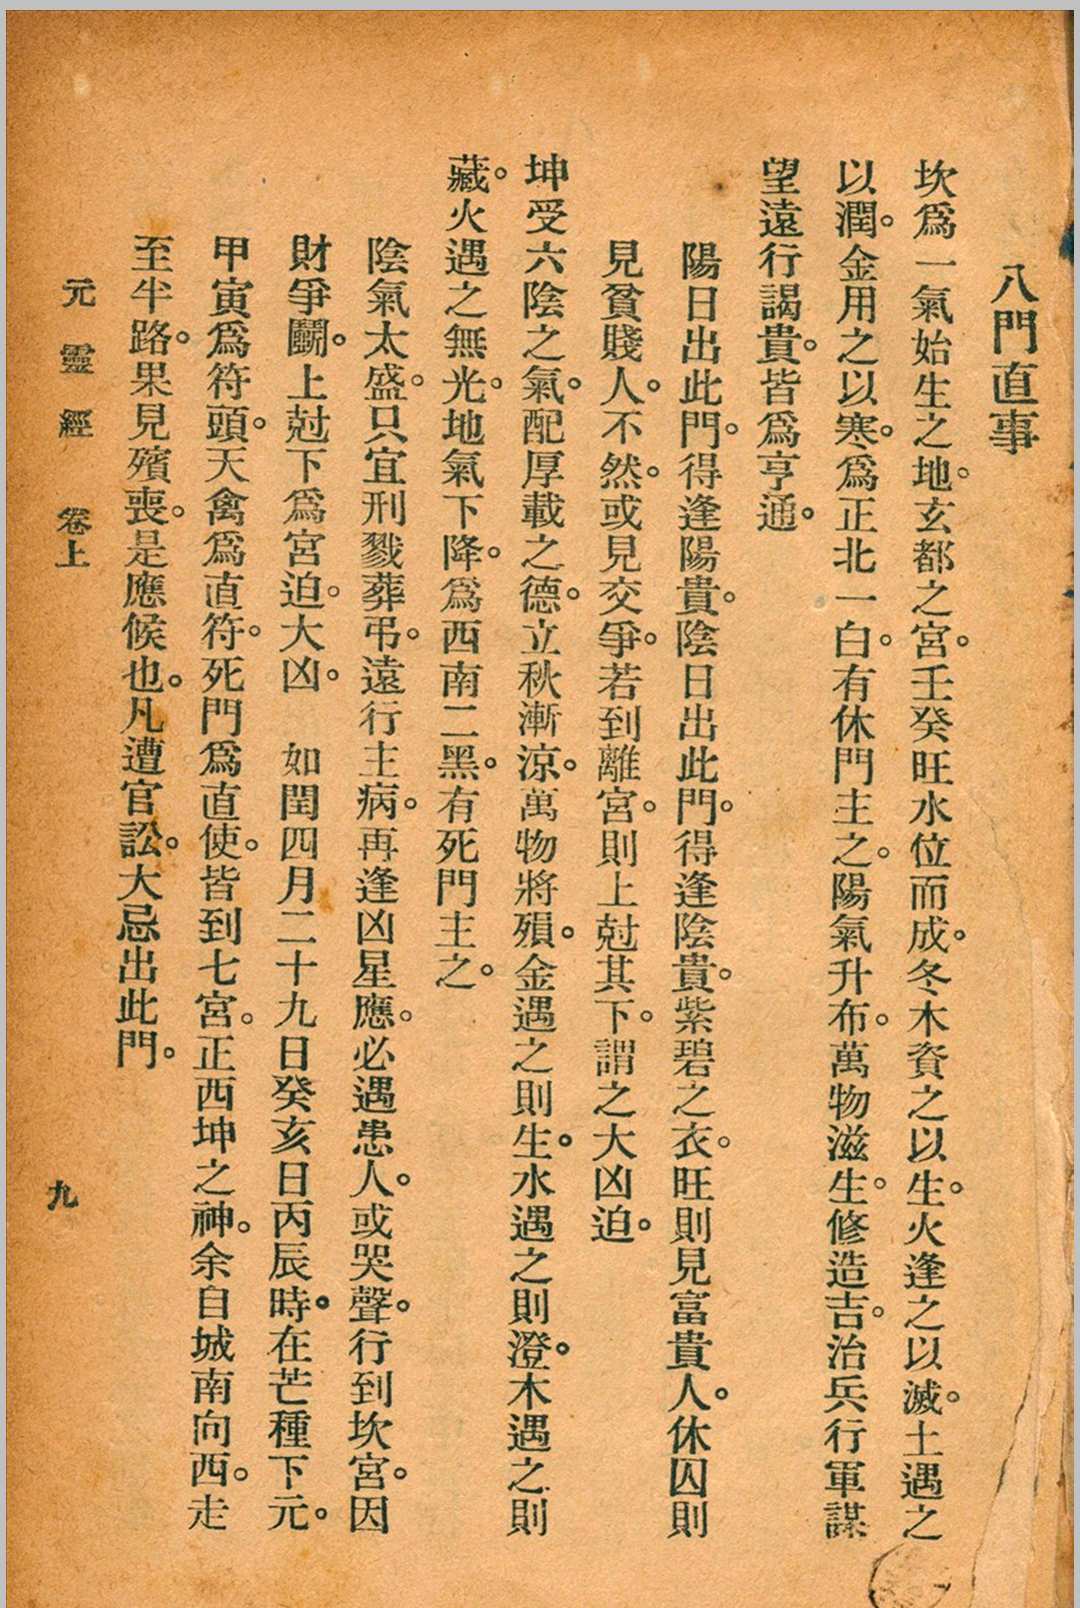 八門直事
坎爲一氣始生之地。玄都之宮。壬癸旺水位而成。冬木資之以生。火逢之以滅。土遇之
以潤。金用之以寒。爲正北一白。有休門主之。陽氣升布。萬物滋生。修造吉。治兵行軍謀
望遠行謁貴。皆爲亨通。
陽日出此門。得逢陽貴。陰日出此門。得逢陰貴。紫碧之衣。旺則見富貴人。休囚則
見貧賤人。不然。或見交爭。若到離宮。則上尅其下。謂之大凶迫。
坤受六陰之氣。配厚載之德。立秋漸涼。萬物將殞。金遇之則生。水遇之則澄。木遇之則
藏。火遇之無光。地氣下降。爲西南二黑。有死門主之。
陰氣太盛。只宜刑戮葬弔。遠行主病。再逢凶星應。必遇患人。或哭聲。行到坎宮。因
財爭鬭。上尅下爲宮迫。大凶。　如閏四月二十九日癸亥日丙辰時。在芒種下元。
甲寅爲符頭。天禽爲直符。死門爲直使。皆到七宮。正西坤之神。余自城南向西。走
至半路。果見殯喪。是應候也。凡遭官訟。大忌出此門。
元靈經　卷上
九